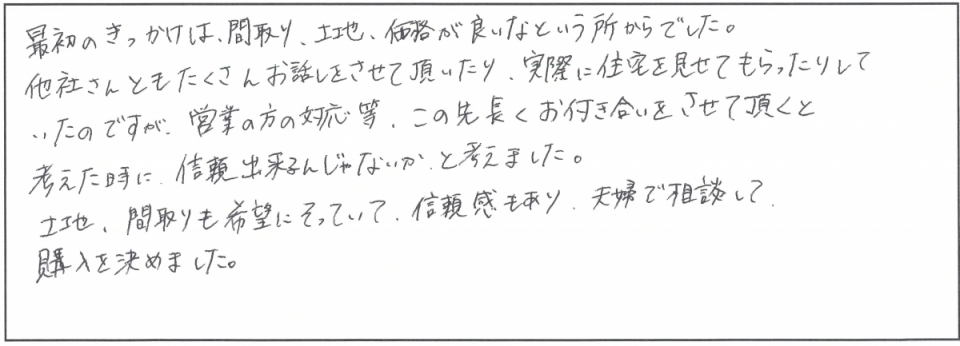 最初のきっかけは、間取り、土地、価格が良いなという所からでした。
他社さんともたくさんお話しをさせて頂いたり、実際に住宅を見せてもらったりして
いたのですが、営業の方の対応等、この先長くお付き合いをさせて頂くと
考えた時に、信頼出来るんじゃないか、と考えました。
土地、間取りも希望にそっていて、信頼感もあり、夫婦で相談して、
購入を決めました。